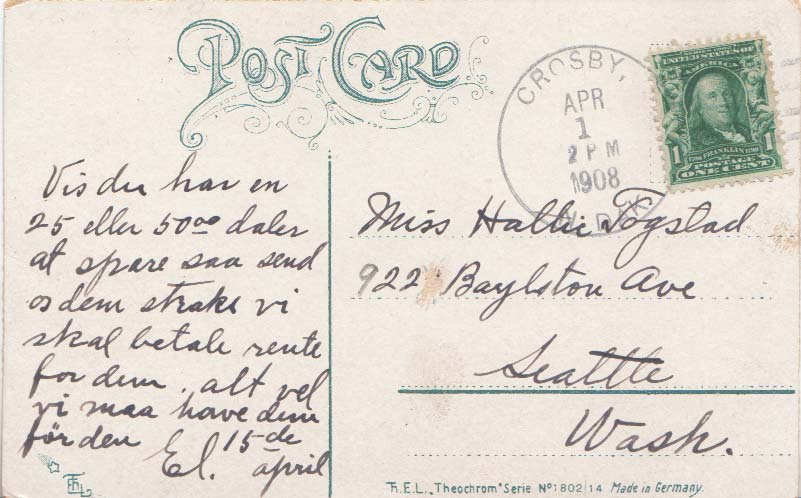 POST CARD
CROSBY,
APR
1
2 PM
1908
N. DAK
UNITED STATES OF
AMERICA
1 1
FRANKLIN
POSTAGE
ONE CENT
Vis du har en
25 eller 50 00 daler
at spare saa send
os dem straks vi
skal betale rente
for dem. alt vel
vi maa have dem
för den 15 de
El. april
Miss Hallie Fogstad
922 Baylston Ave
Seattle
Wash.
Th.E.L. „Theochrom" Serie No 1802/14 Made in Germany.